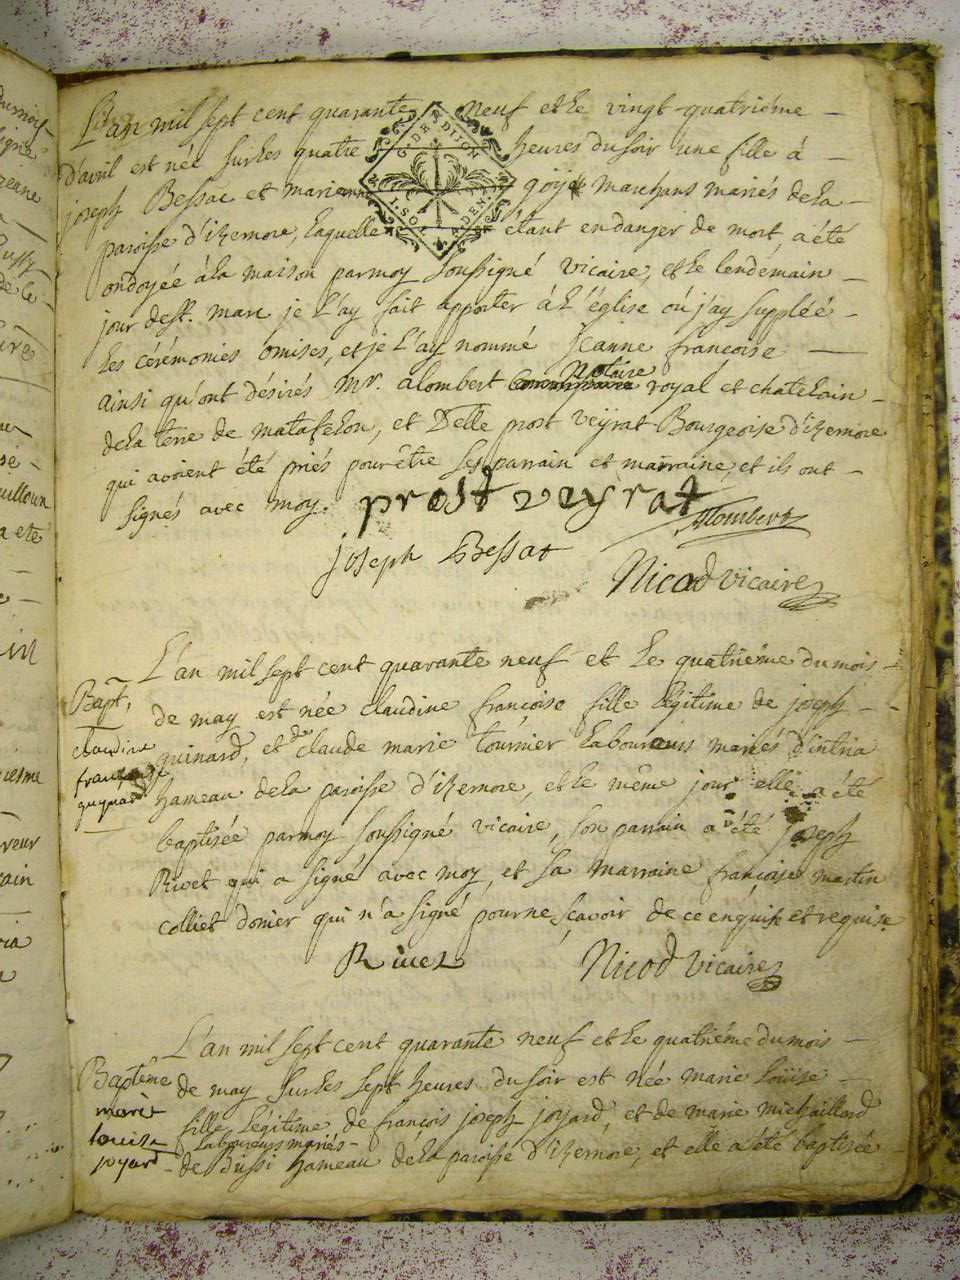 L'an mil sept cent quarante neuf et le vingt-quatriéme
d'avril est née sur les quatre heures du soir une fille à
G. DE DIJON
I. SOL. 4. DEN.
joseph Bessac et marianne goyet marchans mariés de la
paroisse d'izernore, laquelle étant en danger de mort, a été
ondoyée à la maison par moy soussigné vicaire, et le lendemain
jour de st. marc je l'ay fait apporter à l'église où j'ay suppléé
les cérémonies omises, et je l'ay nommé jeanne françoise
notaire
ainsi qu'ont désirés mr. alombert royal et châtelain
de la terre de matafelon, et Delle prost veyrat Bourgeoise d'izernore
qui avoient été priés pour être ses parrain et marraine, et ils ont
signés avec moy.
prost veyrat
Alombert
joseph Bessat
Nicod vicaire
L'an mil sept cent quarante neuf et le quatriéme du mois
Bapt.
de may est née claudine françoise fille légitime de joseph
claudine
guinard, et de claude marie tournier laboureurs mariés d'intria
françoise
guynard
hameau de la paroisse d'izernore, et le même jour elle a été
baptisée par moy soussigné vicaire, son parrain a été joseph
Rivet qui a signé avec moy, et sa marraine françoise martin
colliet donier qui n'a signé pour ne sçavoir de ce enquise et requise.
Rivet
Nicod vicaire
L'an mil sept cent quarante neuf et le quatriéme du mois
Baptéme
de may sur les sept heures du soir est née marie loüise
marie
fille légitime de françois joseph joyard, et de marie michaillard
louise
laboureurs mariés
joyard
de Bussi hameau de la paroisse d'izernore, et elle a été baptisée